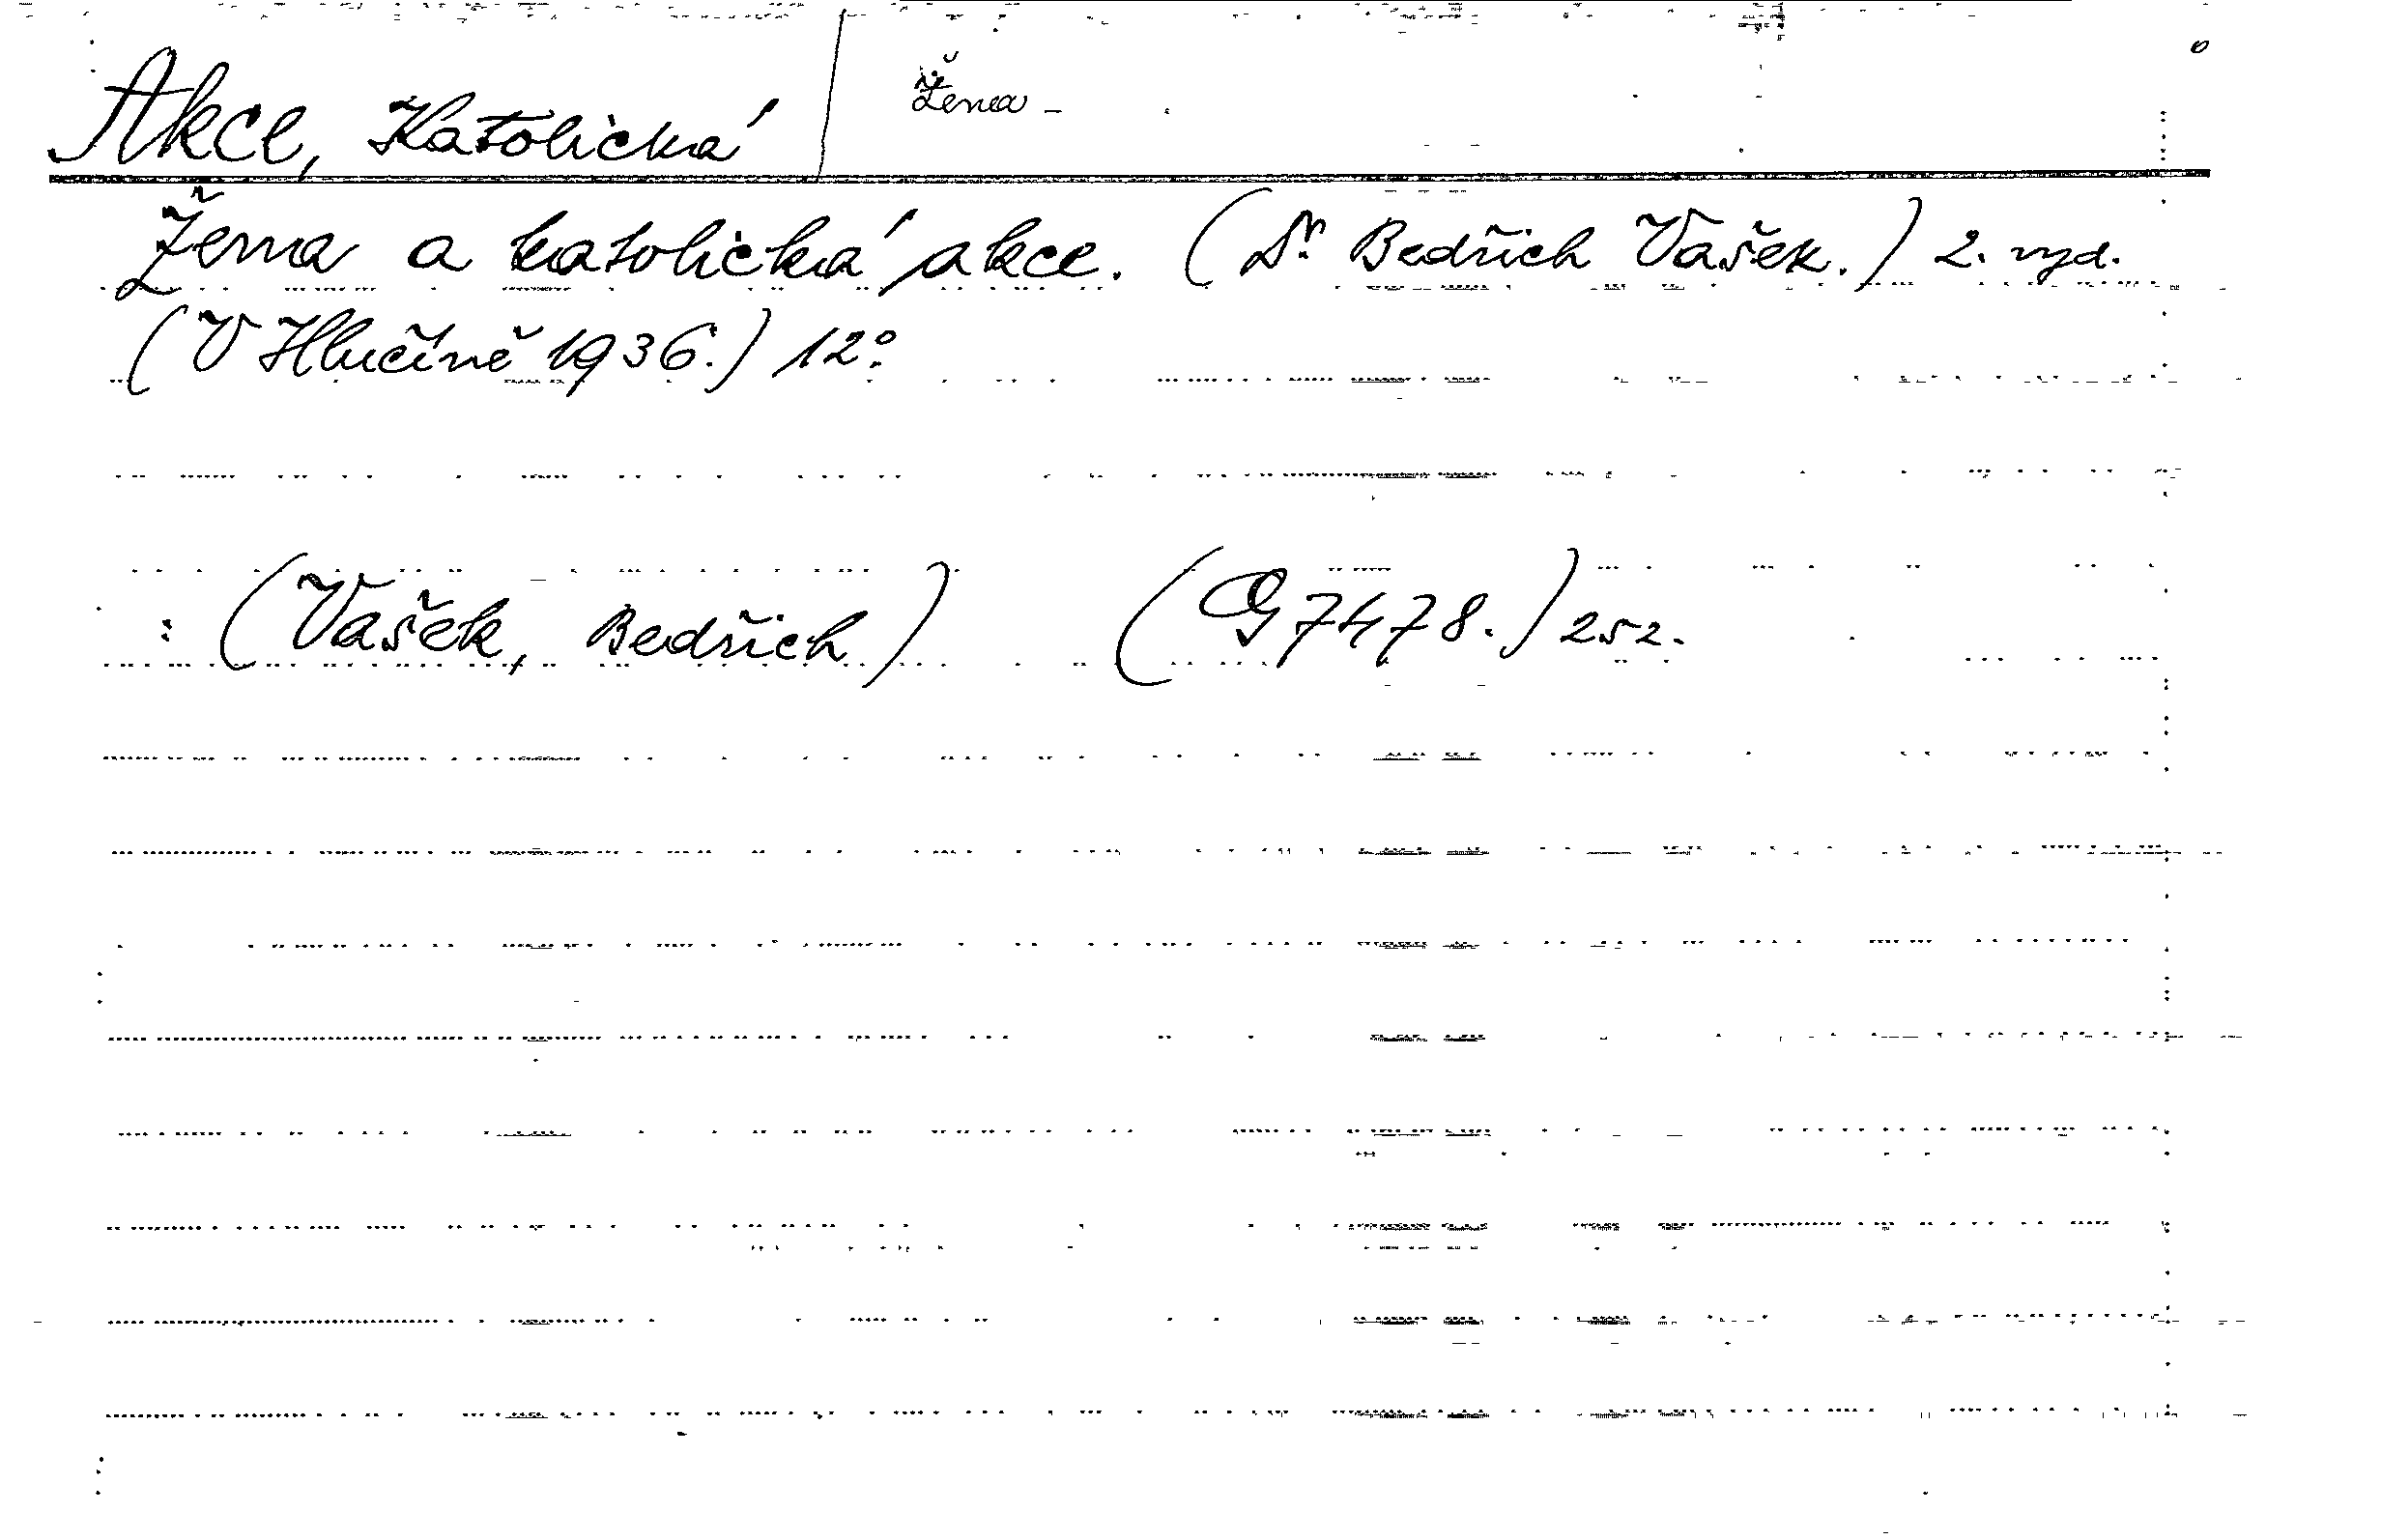 Akce, Katolická / Žena -
Žena a katolická akce. (Dr. Bedřich Vašek.) 2. vyd.
(V Hlučíně 1936.) 12°.
: (Vašek, Bedřich) (G 7478.) 252.